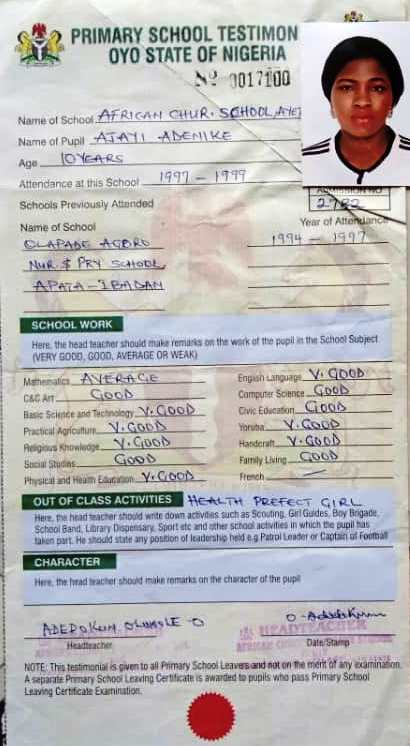 PRIMARY SCHOOL TESTIMON
OYO STATE OF NIGERIA
Nº 0017100
Name of School AFRICAN CHUR. SCHOOL, AYE
Name of Pupil AJAYI ADENIKE
Age 10 YEARS
Attendance at this School 1997 - 1999
ADMISSION NO
2782
Schools Previously Attended
Name of School Year of Attendance
OLAPADE AGORO 1994 - 1997
NUR $ PRY SCHOOL
APATA - IBADAN
SCHOOL WORK
Here, the head teacher should make remarks on the work of the pupil in the School Subject
(VERY GOOD, GOOD, AVERAGE OR WEAK)
Mathematics AVERAGE English Language V. GOOD
C&C Art GOOD Computer Science GOOD
Basic Science and Technology V. GOOD Civic Education GOOD
Practical Agriculture V. GOOD Yoruba V. GOOD
Religious Knowledge V. GOOD Handcraft V. GOOD
Social Studies GOOD Family Living GOOD
Physical and Health Education V. GOOD French
OUT OF CLASS ACTIVITIES HEALTH PREFECT GIRL
Here, the head teacher should write down activities such as Scouting, Girl Guides, Boy Brigade,
School Band, Library Dispensary, Sport etc and other school activities in which the pupil has
taken part. He should state any position of leadership held e.g Patrol Leader or Captain of Football
CHARACTER
Here, the head teacher should make remarks on the character of the pupil
ADEDOKUN O
HEADTEACHER
Headteacher Date/Stamp
NOTE: This testimonial is given to all Primary School Leavers and not on the merit of any examination.
A separate Primary School Leaving Certificate is awarded to pupils who pass Primary School
Leaving Certificate Examination.